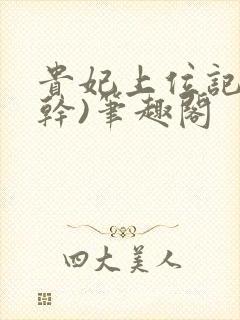 貴妃上位記
幹)筆趣閣
四大美人